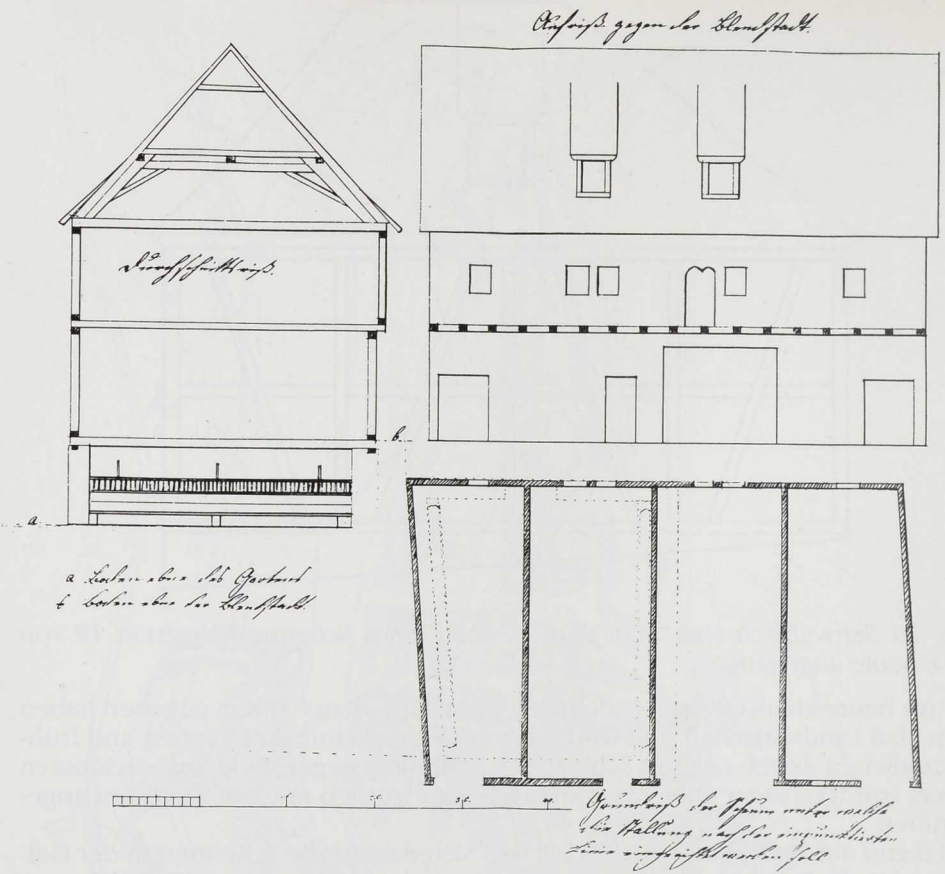 Aufriß gegen der Blendstatt.
Durchschnittsriß.
b
a
a Boden ebne des Gartens
b boden ebne der Blendstatt.
Grundriß der Scheuer unter welche
die Stallung nach der einpünktierten
Linie eingerichtet werden soll